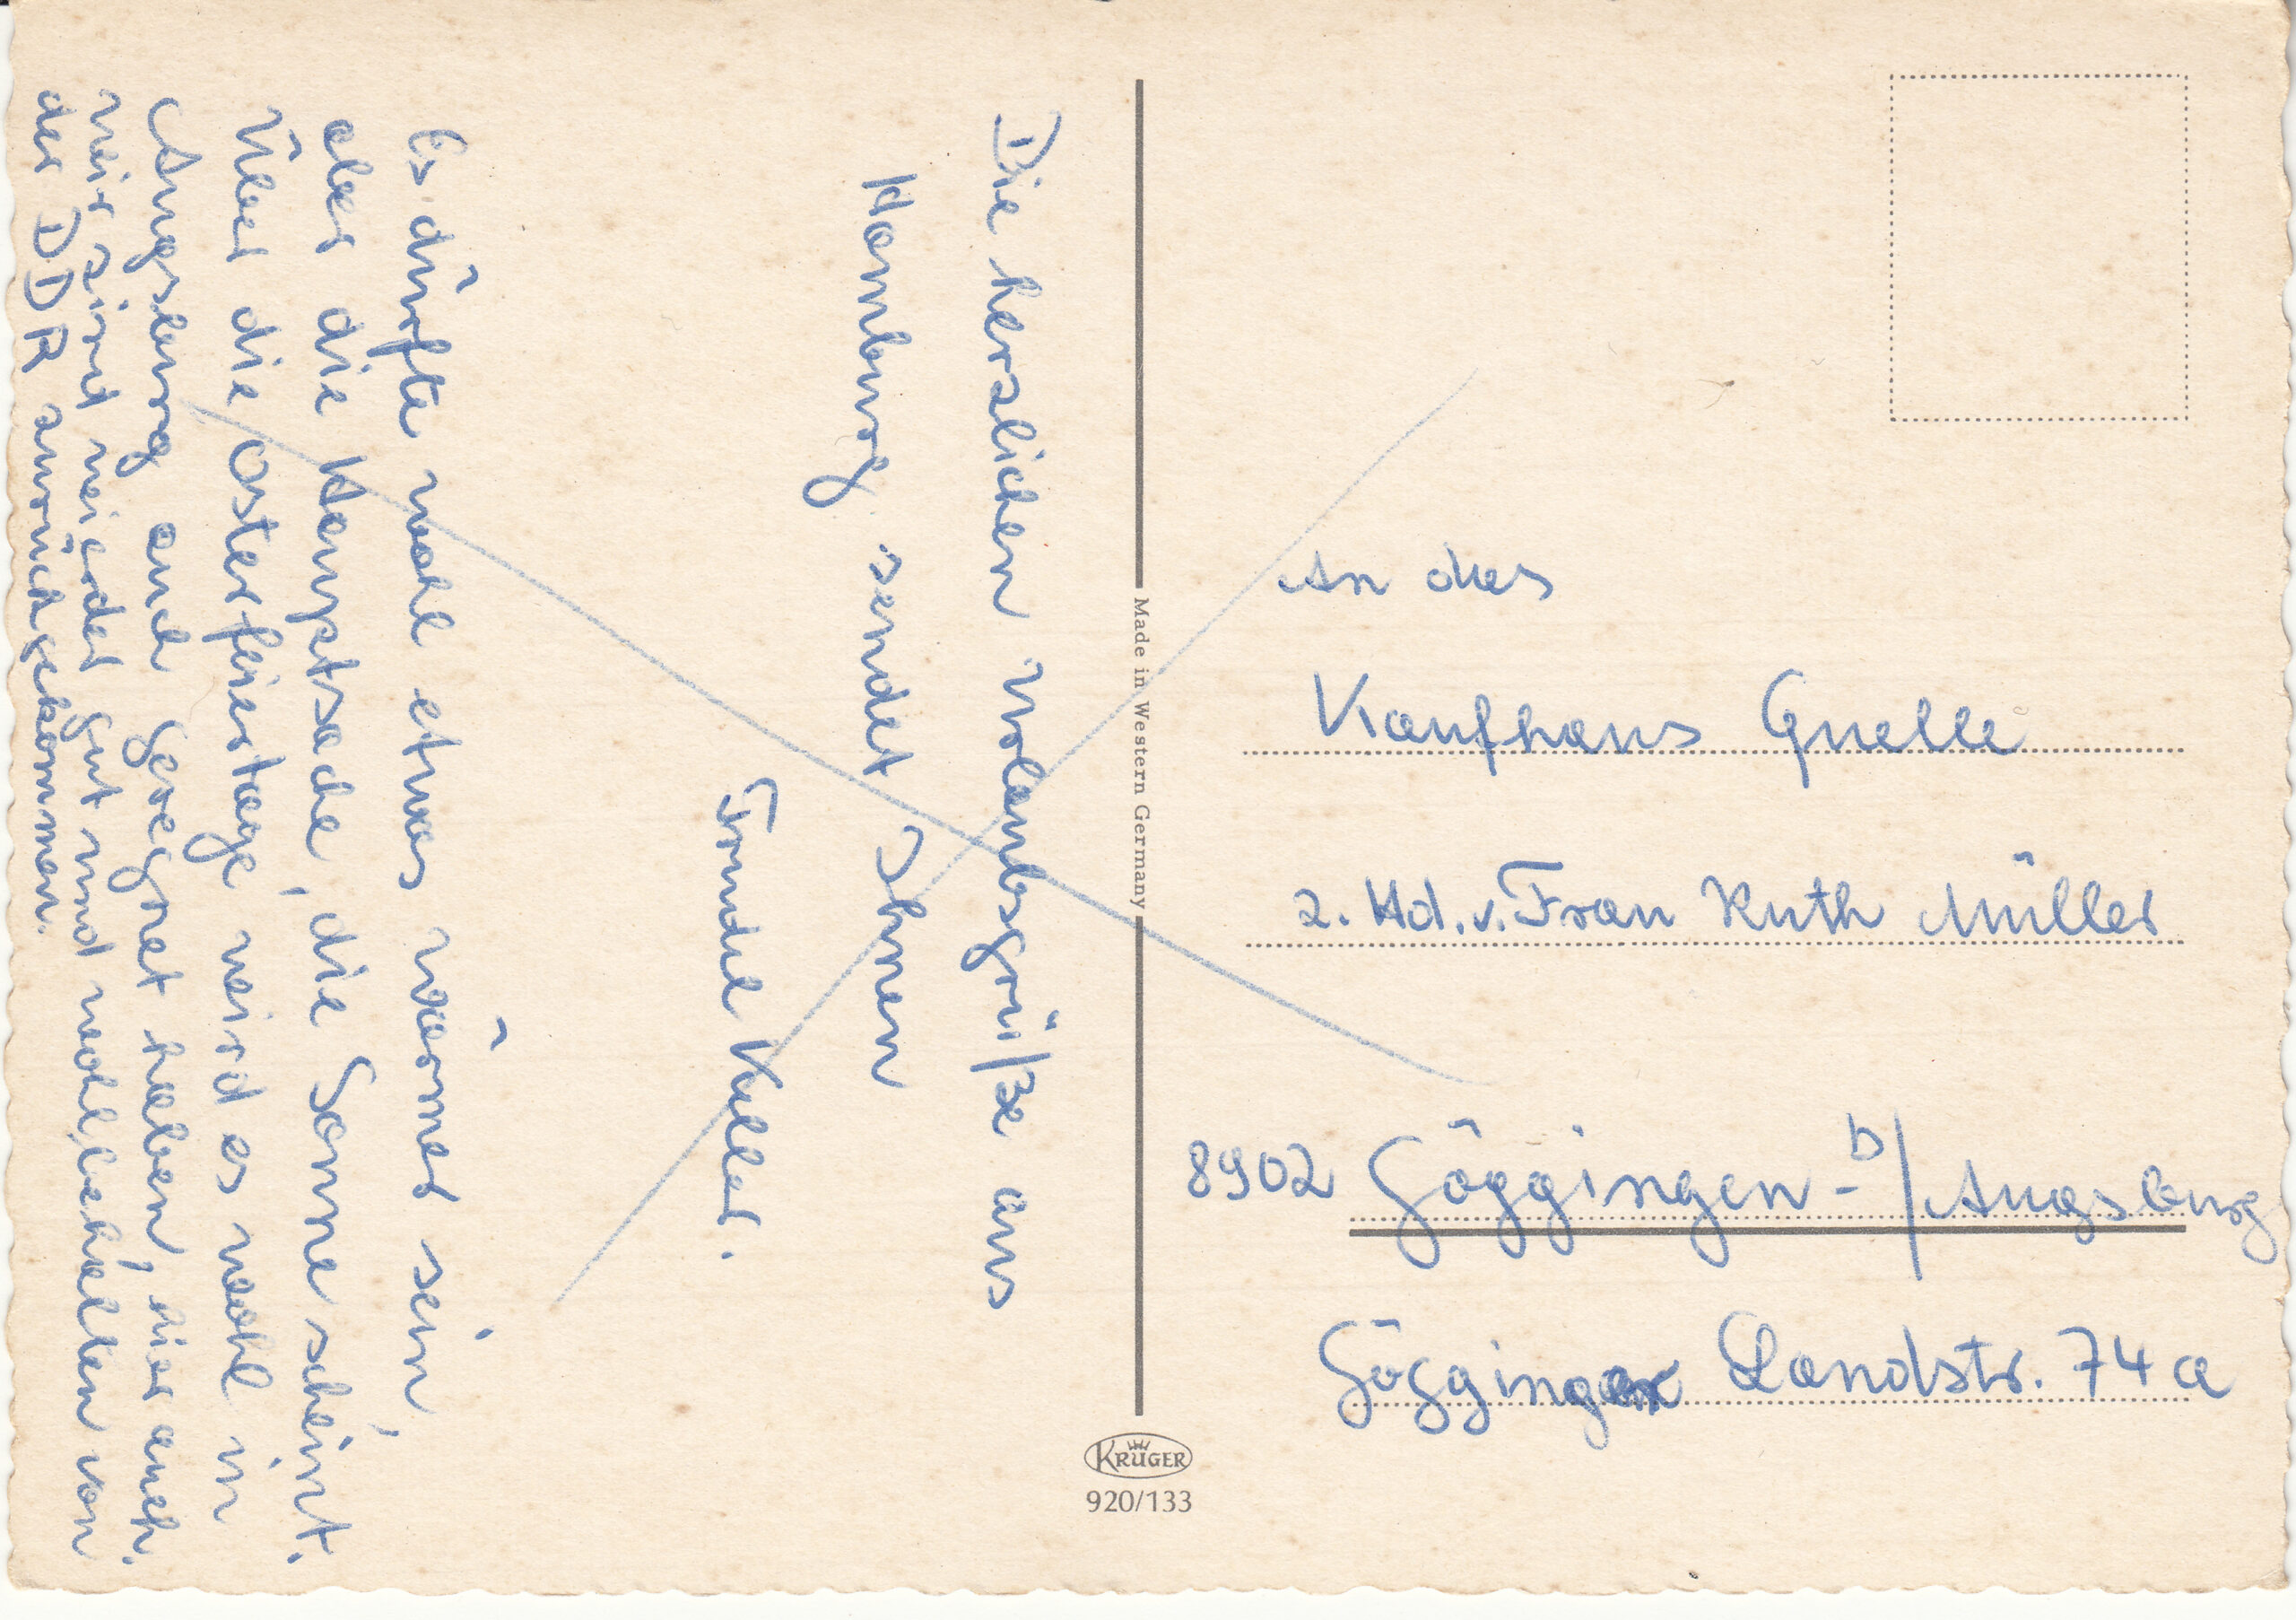 Die herzlichen Urlaubsgrüße aus
Hamburg sendet Ihnen
Trudel Keller.
Es dürfte wohl etwas wärmer sein,
aber die Hauptsache, die Sonne scheint.
Über die Osterfeiertage wird es wohl in
Augsburg auch geregnet haben, hier auch.
wir sind wieder gut und wohlbehalten von
der DDR zurückgekommen.
Made in Western Germany
KRÜGER
920/133
An das
Kaufhaus Quelle
z. Hd. v. Frau Ruth Müller
8902 Göggingen - b/Augsburg
Gögginger Landstr. 74a